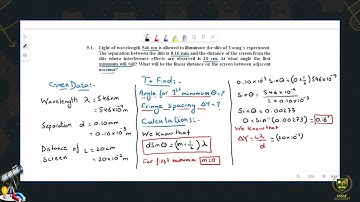 9.1. Light of wavelength 546 nm is allowed to illuminate the slits of Young's experiment.
The separation between the slits is 0.10 mm and the distance of the screen from
the slits where interference effects are observed is 20 cm. At what angle the first
minimum will fall? What will be the linear distance on the screen between adjacent
maxima?
Given Data:-
Wavelength λ = 546nm
= 546x10⁻⁹m
Separation d = 0.10mm
= 0.10x10⁻³m
Distance of L = 20cm
Screen = 20x10⁻²m
To Find:-
Angle for 1st minimum θ = ?
Fringe spacing ΔY = ?
Calculations:-
We Know that
dsinθ = (m+½)λ
For first minimum m=0
0.10x10⁻³ Sinθ = (0+½)546x10⁻⁹
Sinθ = 546x10⁻⁹
2x0.10x10⁻³
Sinθ = 0.00273
θ = Sin⁻¹(0.00273) = 0.16°
We Know that
ΔY = Lλ
d
= (20x10⁻²)